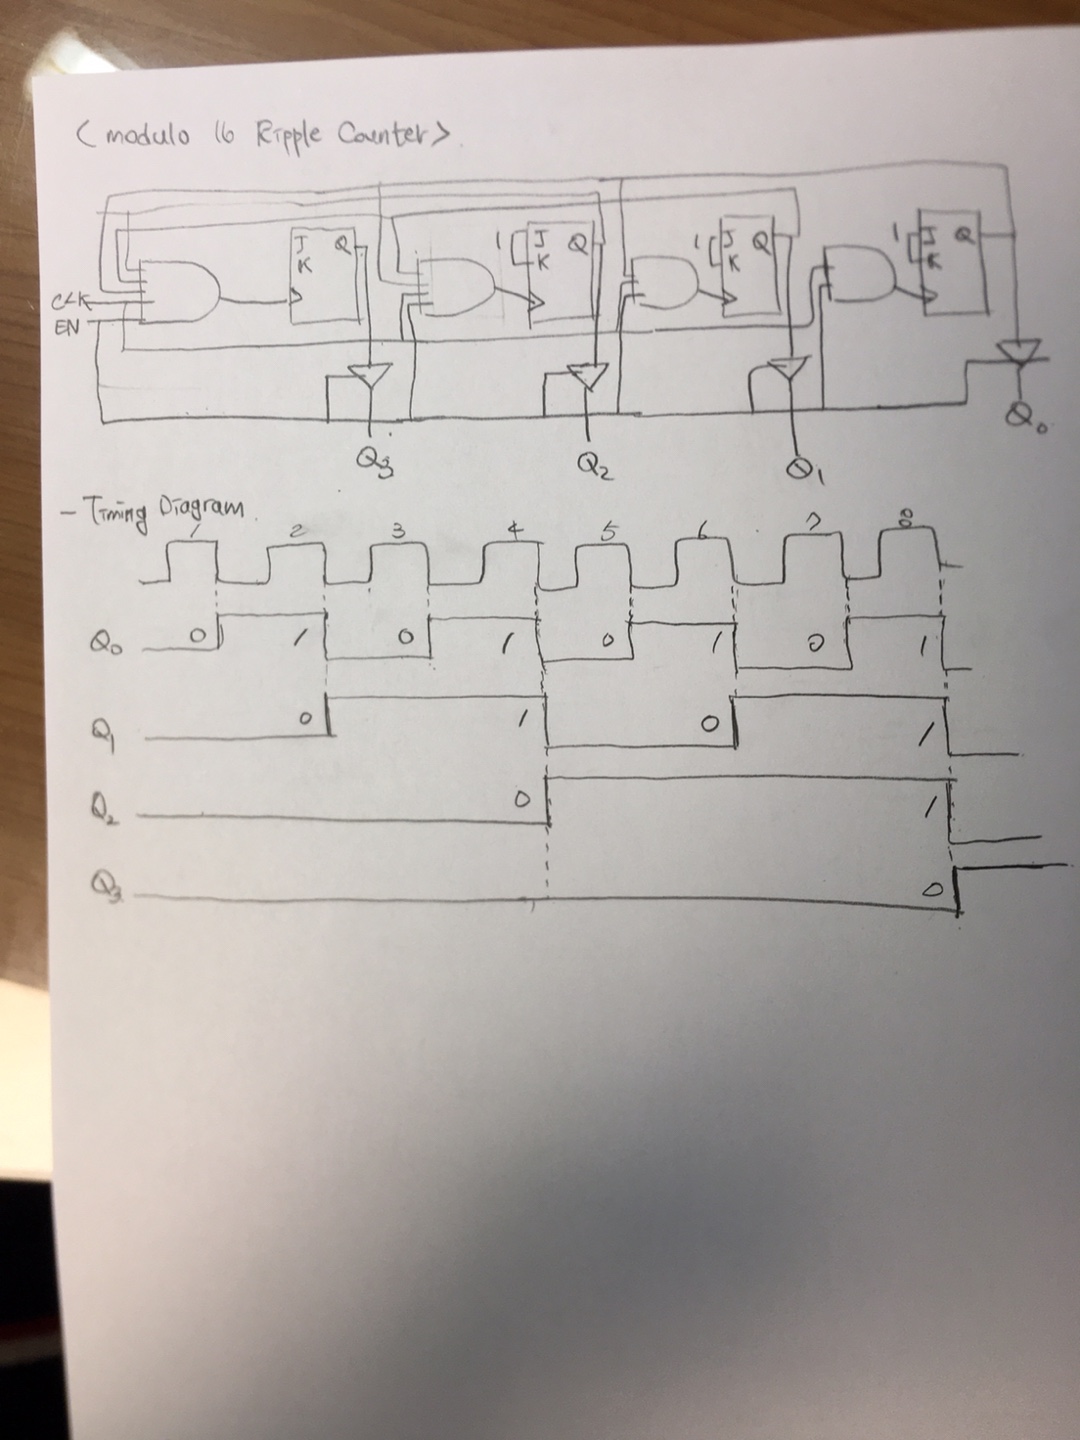 <modulo 16 Ripple Counter>.
J Q 1 J Q 1 J Q 1 J Q
K K K K
CLK
EN
Q0
Q3 Q2 Q1
- Timing Diagram.
1 2 3 4 5 6 7 8
Q0 0 1 0 1 0 1 0 1
Q1 0 1 0 1
Q2 0 1
Q3 0